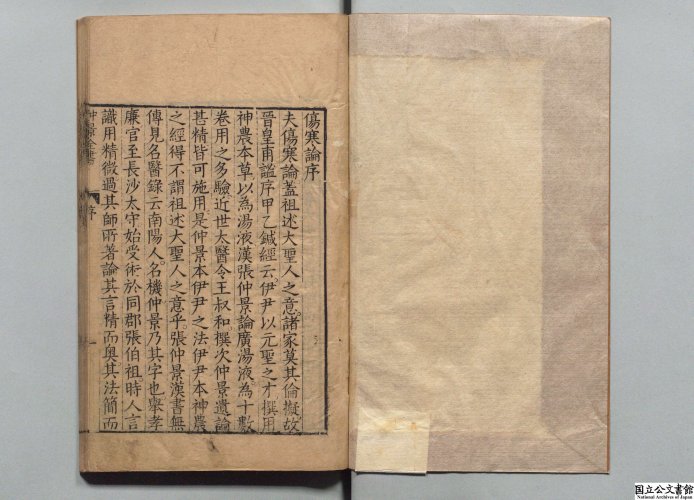 傷寒論序
夫傷寒論蓋祖述大聖人之意諸家莫其倫擬故
晉皇甫謐序甲乙鍼經云伊尹以元聖之才撰用
神農本草以為湯液漢張仲景論廣湯液為十數
卷用之多驗近世太醫令王叔和撰次仲景遺論
甚精皆可施用是仲景本伊尹之法伊尹本神農
之經得不謂祖述大聖人之意乎張仲景漢書無
傳見名醫錄云南陽人名機仲景乃其字也舉孝
廉官至長沙太守始受術於同郡張伯祖時人言
識用精微過其師所著論其言精而奧其法簡而
仲景全書
序
一
国立公文書館
National Archives of Japan